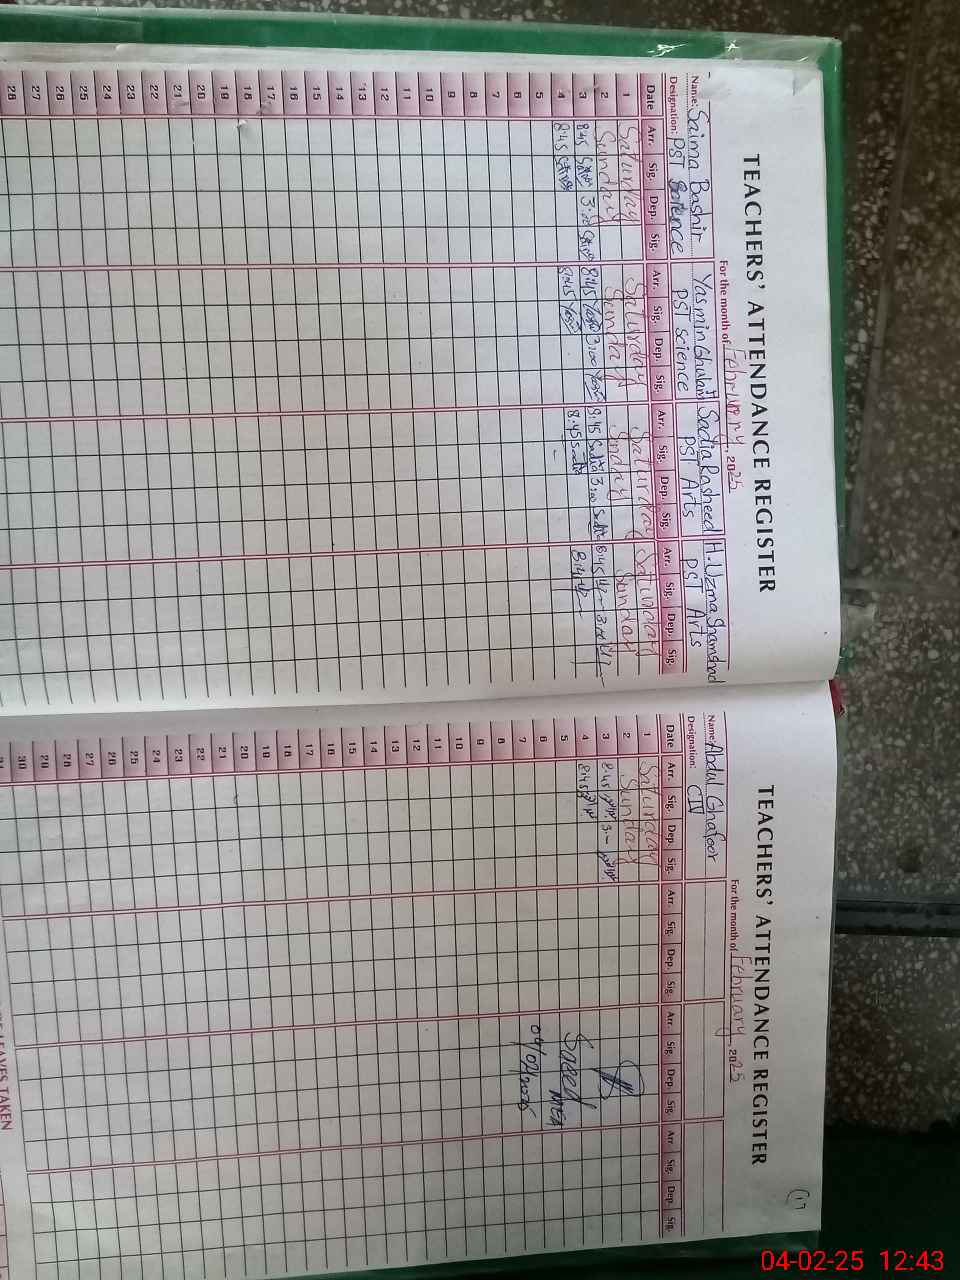 TEACHERS' ATTENDANCE REGISTER
For the month of February, 2025
Name: Saima Bashir Yasmin Ghulam Sadia Rasheed H. Uzma Shamshad
Designation: PST Science PST Science PST Arts PST Arts
Date Arr. Sig. Dep. Sig. Arr. Sig. Dep. Sig. Arr. Sig. Dep. Sig. Arr. Sig. Dep. Sig.
1 Saturday Saturday Saturday Saturday
2 Sunday Sunday Sunday Sunday
3 8:45 3:00 8:45 3:00 8:45 Sadia 3:00 Sadia 8:45
4 8:45 8:45 8:45 Sadia
5
6
7
8
9
10
11
12
13
14
15
16
17
18
19
20
21
22
23
24
25
26
27
28
(17)
TEACHERS' ATTENDANCE REGISTER
For the month of February, 2025
Name: Abdul Ghafoor
Designation:
Date Arr. Sig. Dep. Sig. Arr. Sig. Dep. Sig. Arr. Sig. Dep. Sig. Arr. Sig. Dep. Sig.
1 Saturday
2 Sunday
3 8:45
4 8:45
5
6
7
8
9
10
11
12
13
14
15
16
17
18
19
20
21
22
23
24
25
26
27
28
29
30
Saeed MEA
04/02/2025
LEAVES TAKEN
04-02-25 12:43